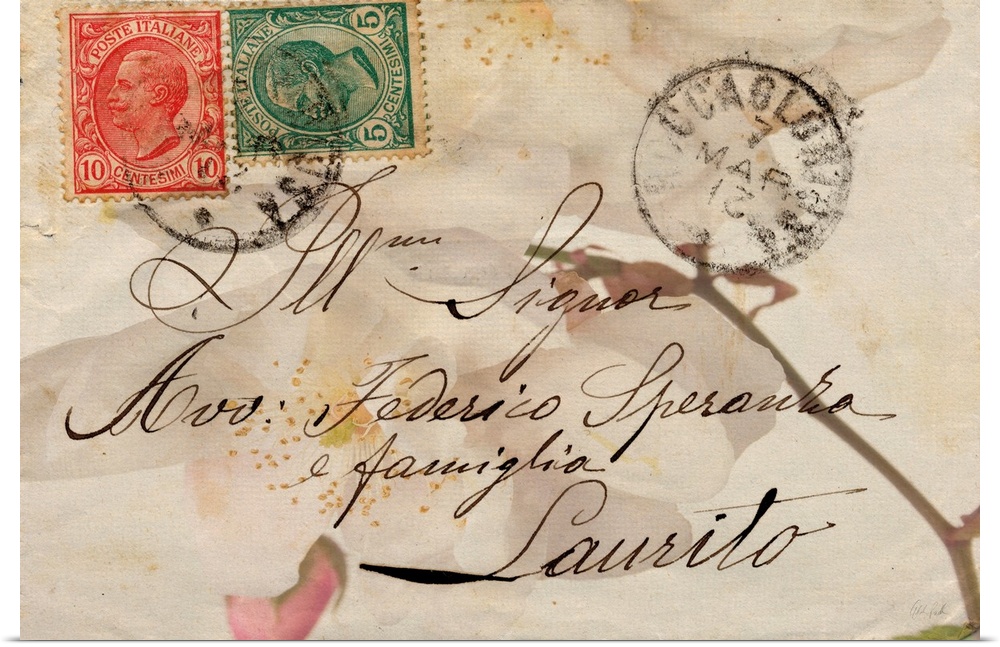 POSTE ITALIANE
10 CENTESIMI 10
POSTE ITALIANE
5 CENTESIMI 5
MAR
Ill mi Signor
Avv: Federico Speranza
e famiglia
Laurito